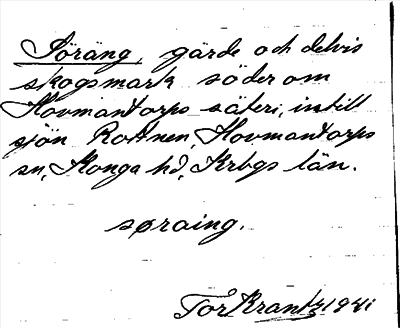 Söräng, gärde och delvis
skogsmark söder om
Hovmantorps säteri, intill
sjön Rottnen, Hovmantorps
sn, Konga hd, Krbgs län.
søraing.
Tor Krantz 1941